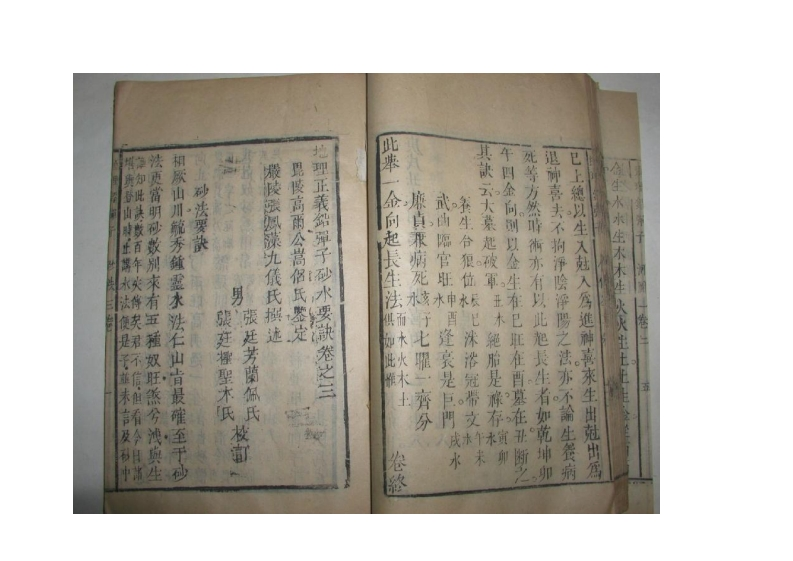 金生水水生木木生火火生土土生金
卷二
五
已上總以生入尅入為進神喜來生出尅出為
退神喜去不拘淨陰淨陽之法亦不論生養病
死等方然時術亦有以此起長生者如乾坤卯
午四金向則以金生在巳旺在酉墓在丑斷之
其訣云大墓起破軍丑水絕胎是祿存水寅卯
養生合狼位水辰巳沐浴冠帶文水午未
武曲臨官旺水申酉逢衰是巨門戌水
廉貞兼病死水亥子七曜一齊分
此舉一金向起長生法而水火木土俱如此推
卷終
地理正義鉛彈子砂水要訣卷之三
毘陵高爾公嵩侶氏鑒定
嚴陵張鳳藻九儀氏撰述
男張廷芳蘭佩氏
張廷樞聖木氏
校訂
砂法要訣
相厥山川毓秀鍾靈水法仁山旨最確至于砂
法更當明砂數別來有五種奴旺煞兮洩與生